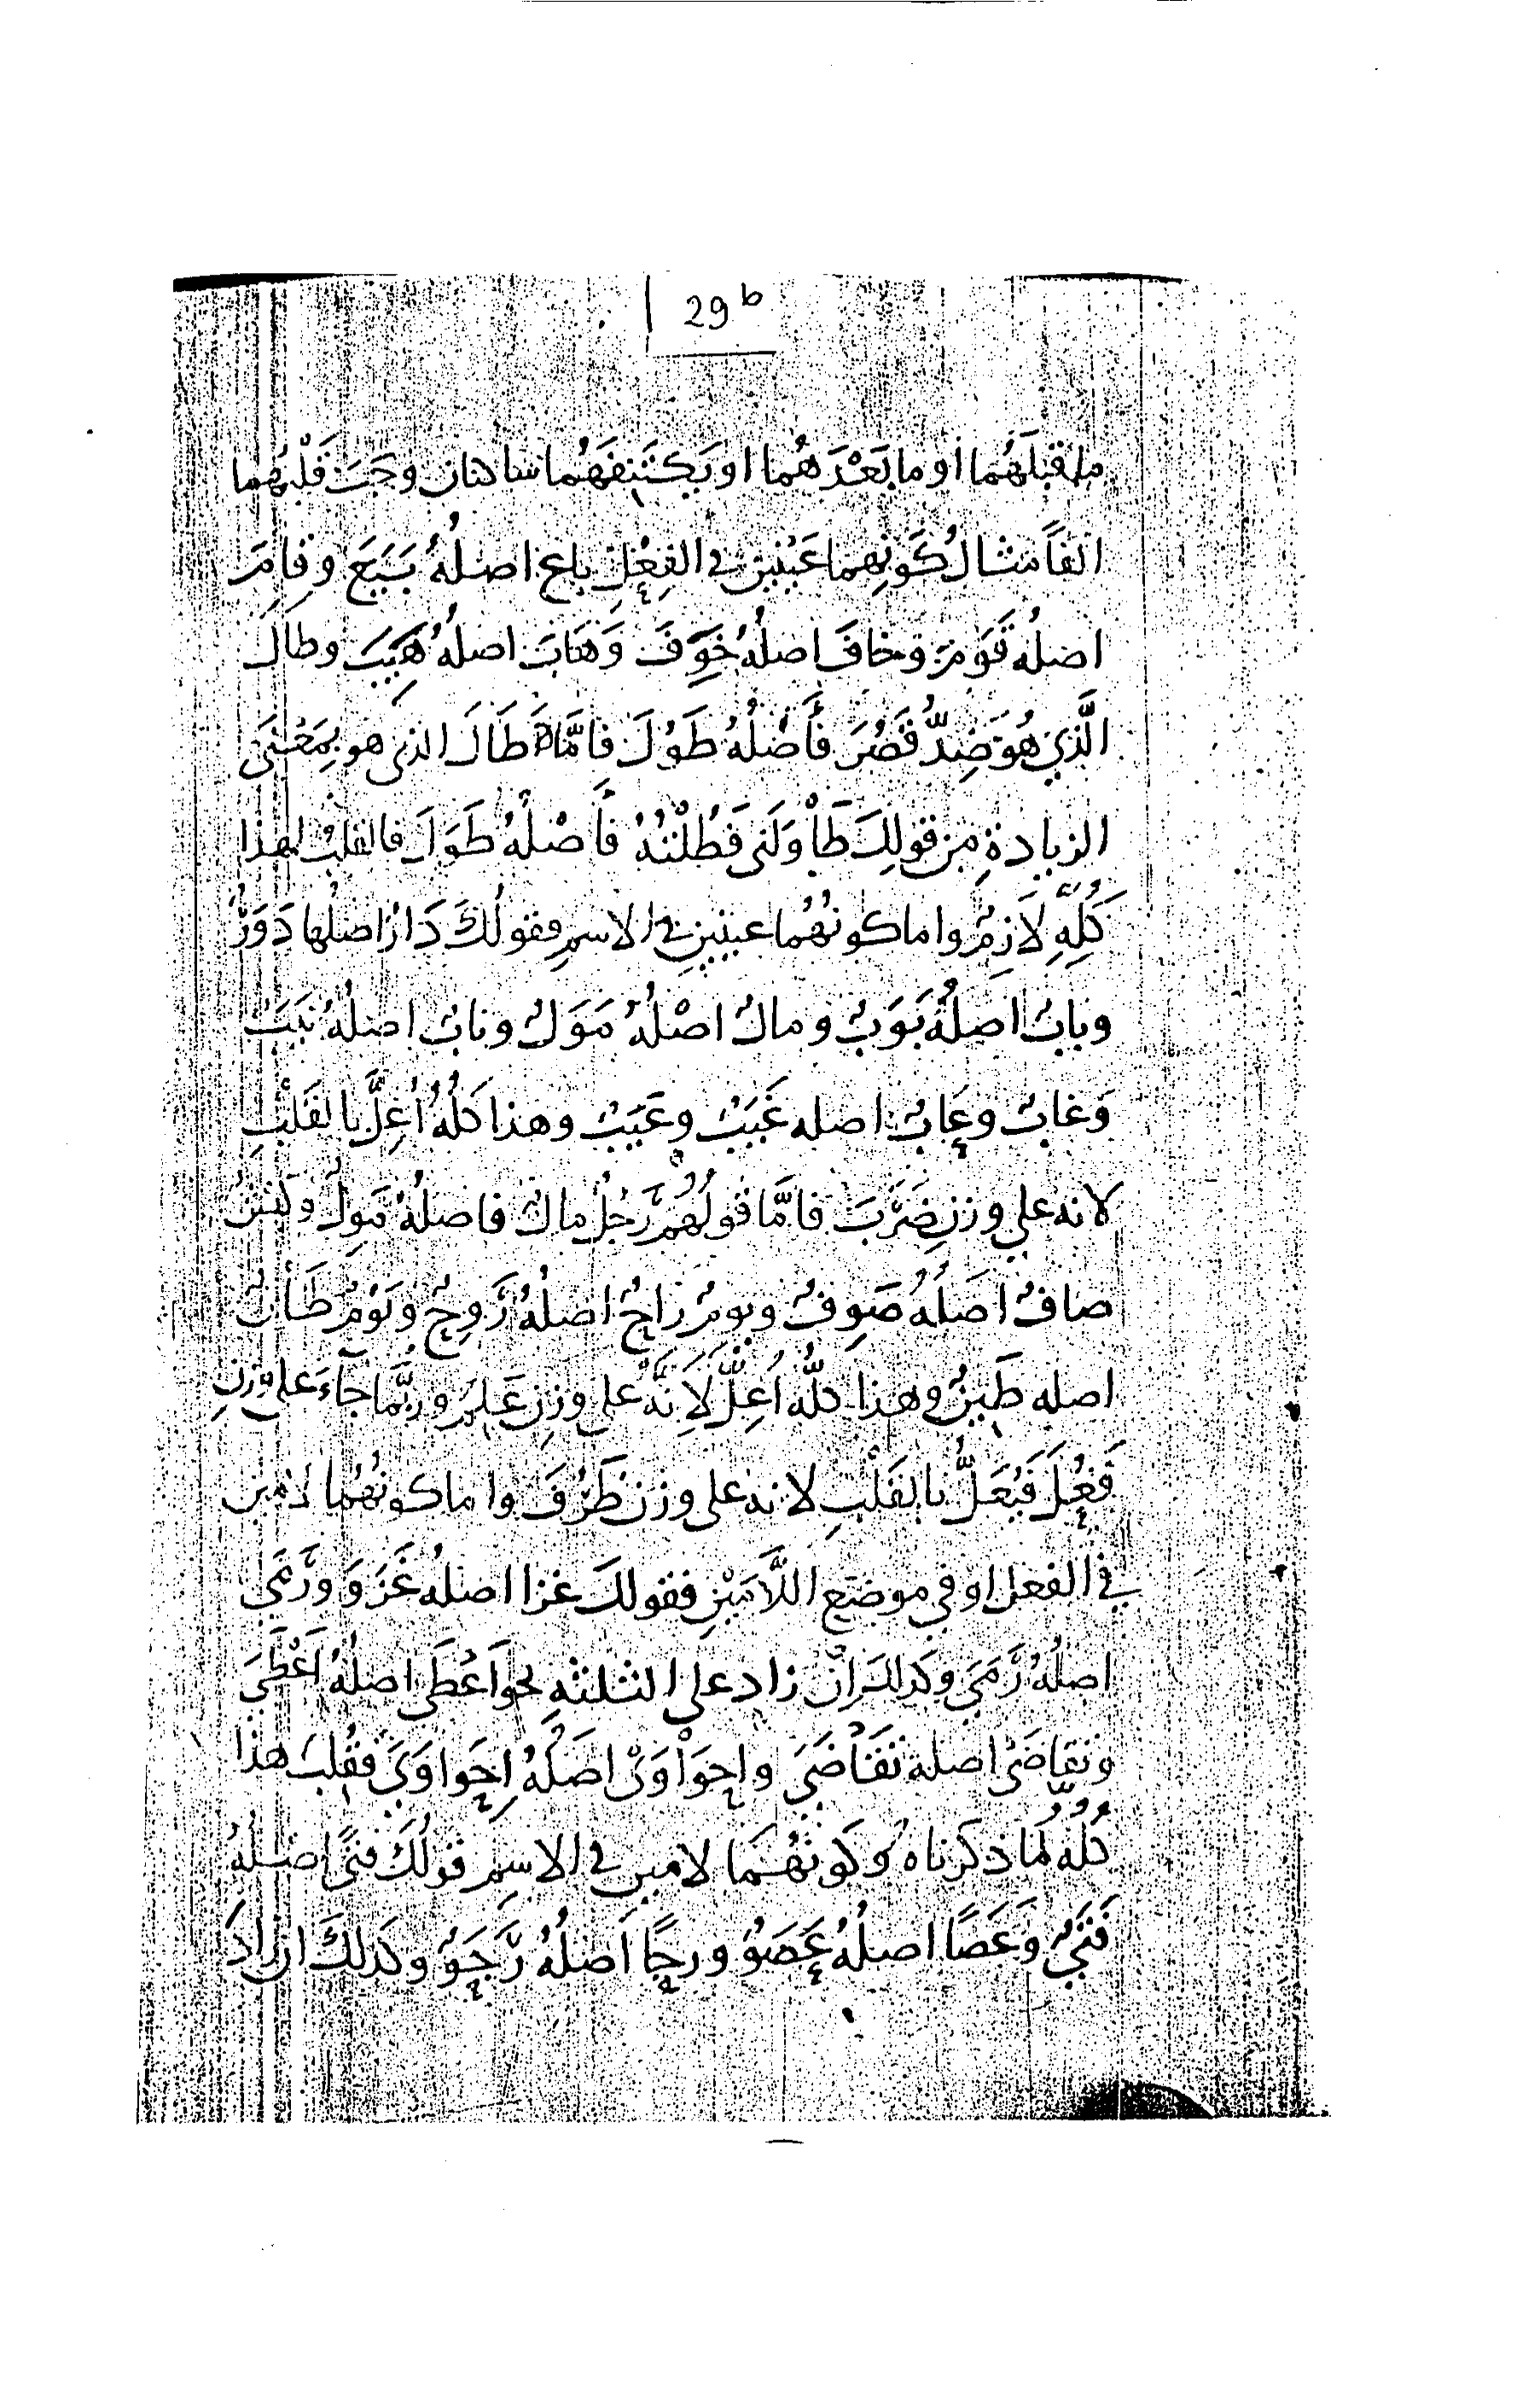 29b
ما قبلَهُما أو ما بَعْدَهُما او يَكتَنِفَهُما ساكنان وجَبَ قَلْبُهُما
الفاً مثالُ كَوْنِهِما عَيْنَيْنِ في الفِعْلِ باع اصلُهُ بَيَعَ وقامَ
اصلُه قَوَمَ وخافَ اصلُهُ خَوِفَ وَهَابَ اصلُهُ هَيِبَ وطالَ
الَّذي هُوَ ضِدُّ قَصُرَ فَأَصْلُهُ طَوُلَ فامَّا طَالَ الذي هو بِمَعْنَى
الزيادةِ مِن قولِكَ طَاْوَلَني فَطُلْتُهُ فأَصْلُهُ طَوَلَ فالقلبُ لهذا
كُلِّهِ لاَزِمٌ واما كونُهُما عينينِ في الاسمِ فقولُكَ دَارٌ اصلُها دَوَرٌ
وبابٌ اصلُهُ بَوَبٌ ومالٌ اصْلُهُ مَوَلٌ ونابٌ اصلُهُ نَيَبٌ
وَغابٌ وعابٌ اصله غَيَبٌ وعَيَبٌ وهذا كلُّهُ أُعِلَّ بالقَلْبِ
لانه على وزنِ ضَرَبَ فامَّا قولُهُم رَجُلٌ مالٌ فاصلُهُ مَوِلٌ وكبشٌ
صافٌ اصَلُهُ صَوِفٌ ويومٌ راحٌ اصلُهُ رَوِحٌ ويَوْمٌ طَانٌ
اصله طَيِنٌ وهذا كلُّه أُعِلَّ لأَنَّهُ على وزنِ عَلِمَ ورُبَّما جآءَ على وزنِ
فَعُلَ فَيُعَلُّ بالقَلْبِ لانه على وزن ظَرُفَ واما كونُهُما لامين
في الفعل او في موضع اللَّامَيْنِ فقولك غزا اصلُه غَزَوَ ورَمَى
اصلُهُ رَمَيَ وكذلك ان زاد على الثلثةِ نحو أَعْطَى اصلُهُ أَعْطَيَ
وتقاضى اصله تَقَاْضَيَ واحوَاْوَى اصَلُهُ اِحْواوَيَ فقُلِبَ هذا
كُلُّه لما ذكرناه وكَونُهُمَا لامين في الاسِمِ قولُكَ فتًى اصْلُهُ
فَتَيٌ وَعَصًا اصلُهُ عَصَوٌ ورحًا اَصلُهُ رَحَوٌ وكذلك ان زادَ